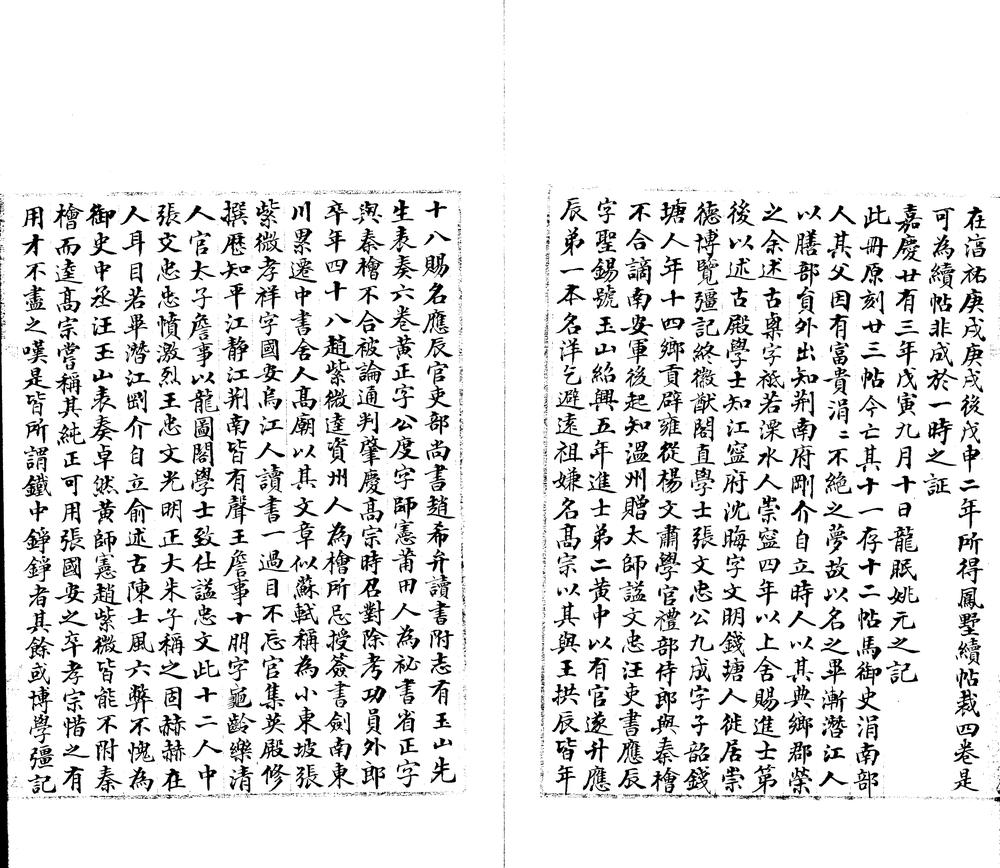 在淳祐庚戌庚戌後戊申二年所得鳳墅續帖裁四卷是
可為續帖非成於一時之証
嘉慶廿有三年戊寅九月十日龍眠姚元之記
此冊原刻廿三帖今亡其十一存十二帖馬御史涓南部
人其父因有富貴涓〻不絕之夢故以名之畢漸潛江人
以膳部員外出知荆南府剛介自立時人以其典鄉郡榮
之余述古㮚字祗若溧水人崇寧四年以上舍賜進士第
後以述古殿學士知江寧府沈晦字文明錢塘人徙居崇
德博覽彊記終徽猷閣直學士張文忠公九成字子韶錢
塘人年十四鄉貢辟雍從楊文肅學官禮部侍郎與秦檜
不合謫南安軍後起知溫州贈太師謚文忠汪吏書應辰
字聖錫號玉山紹興五年進士第二黃中以有官遂升應
辰第一本名洋乞避遠祖嫌名高宗以其與王拱辰皆年
十八賜名應辰官吏部尚書趙希弁讀書附志有玉山先
生表奏六卷黃正字公度字師憲莆田人為祕書省正字
與秦檜不合被論通判肇慶高宗時召對除考功員外郎
卒年四十八趙紫微逵資州人為檜所忌授簽書劍南東
川累遷中書舍人高廟以其文章似蘇軾稱為小東坡張
紫微孝祥字國安烏江人讀書一過目不忘官集英殿修
撰歷知平江静江荆南皆有聲王詹事十朋字龜齡樂清
人官太子詹事以龍圖閣學士致仕謚忠文此十二人中
張文忠忠憤激烈王忠文光明正大朱子稱之固赫赫在
人耳目若畢潛江剛介自立俞述古陳士風六弊不愧為
御史中丞汪玉山表奏卓然黃師憲趙紫微皆能不附秦
檜而逵高宗嘗稱其純正可用張國安之卒孝宗惜之有
用才不盡之嘆是皆所謂鐵中錚錚者其餘或博學彊記